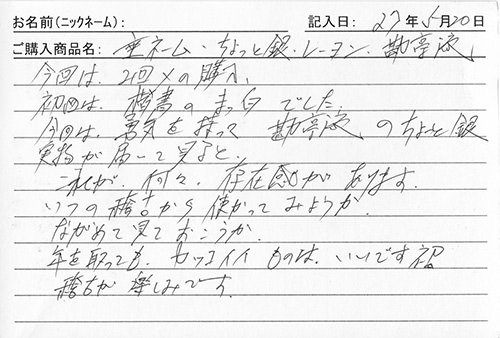 お名前(ニックネーム): 記入日: 27年5月20日
ご購入商品名: 垂ネーム・ちょっと銀.レーヨン.勘亭流
今回は、2回メの購入、
初回は、楷書のまっ白でした。
今回は、勇気を持って 勘亭流のちょっと銀
実物が届いて見ると、
これが、何々、存在感があります。
いつの稽古から使かってみようか、
ながめて見ておこうか、
年を取っても、カッコイイものは、いいです祁
稽古が楽しみです。